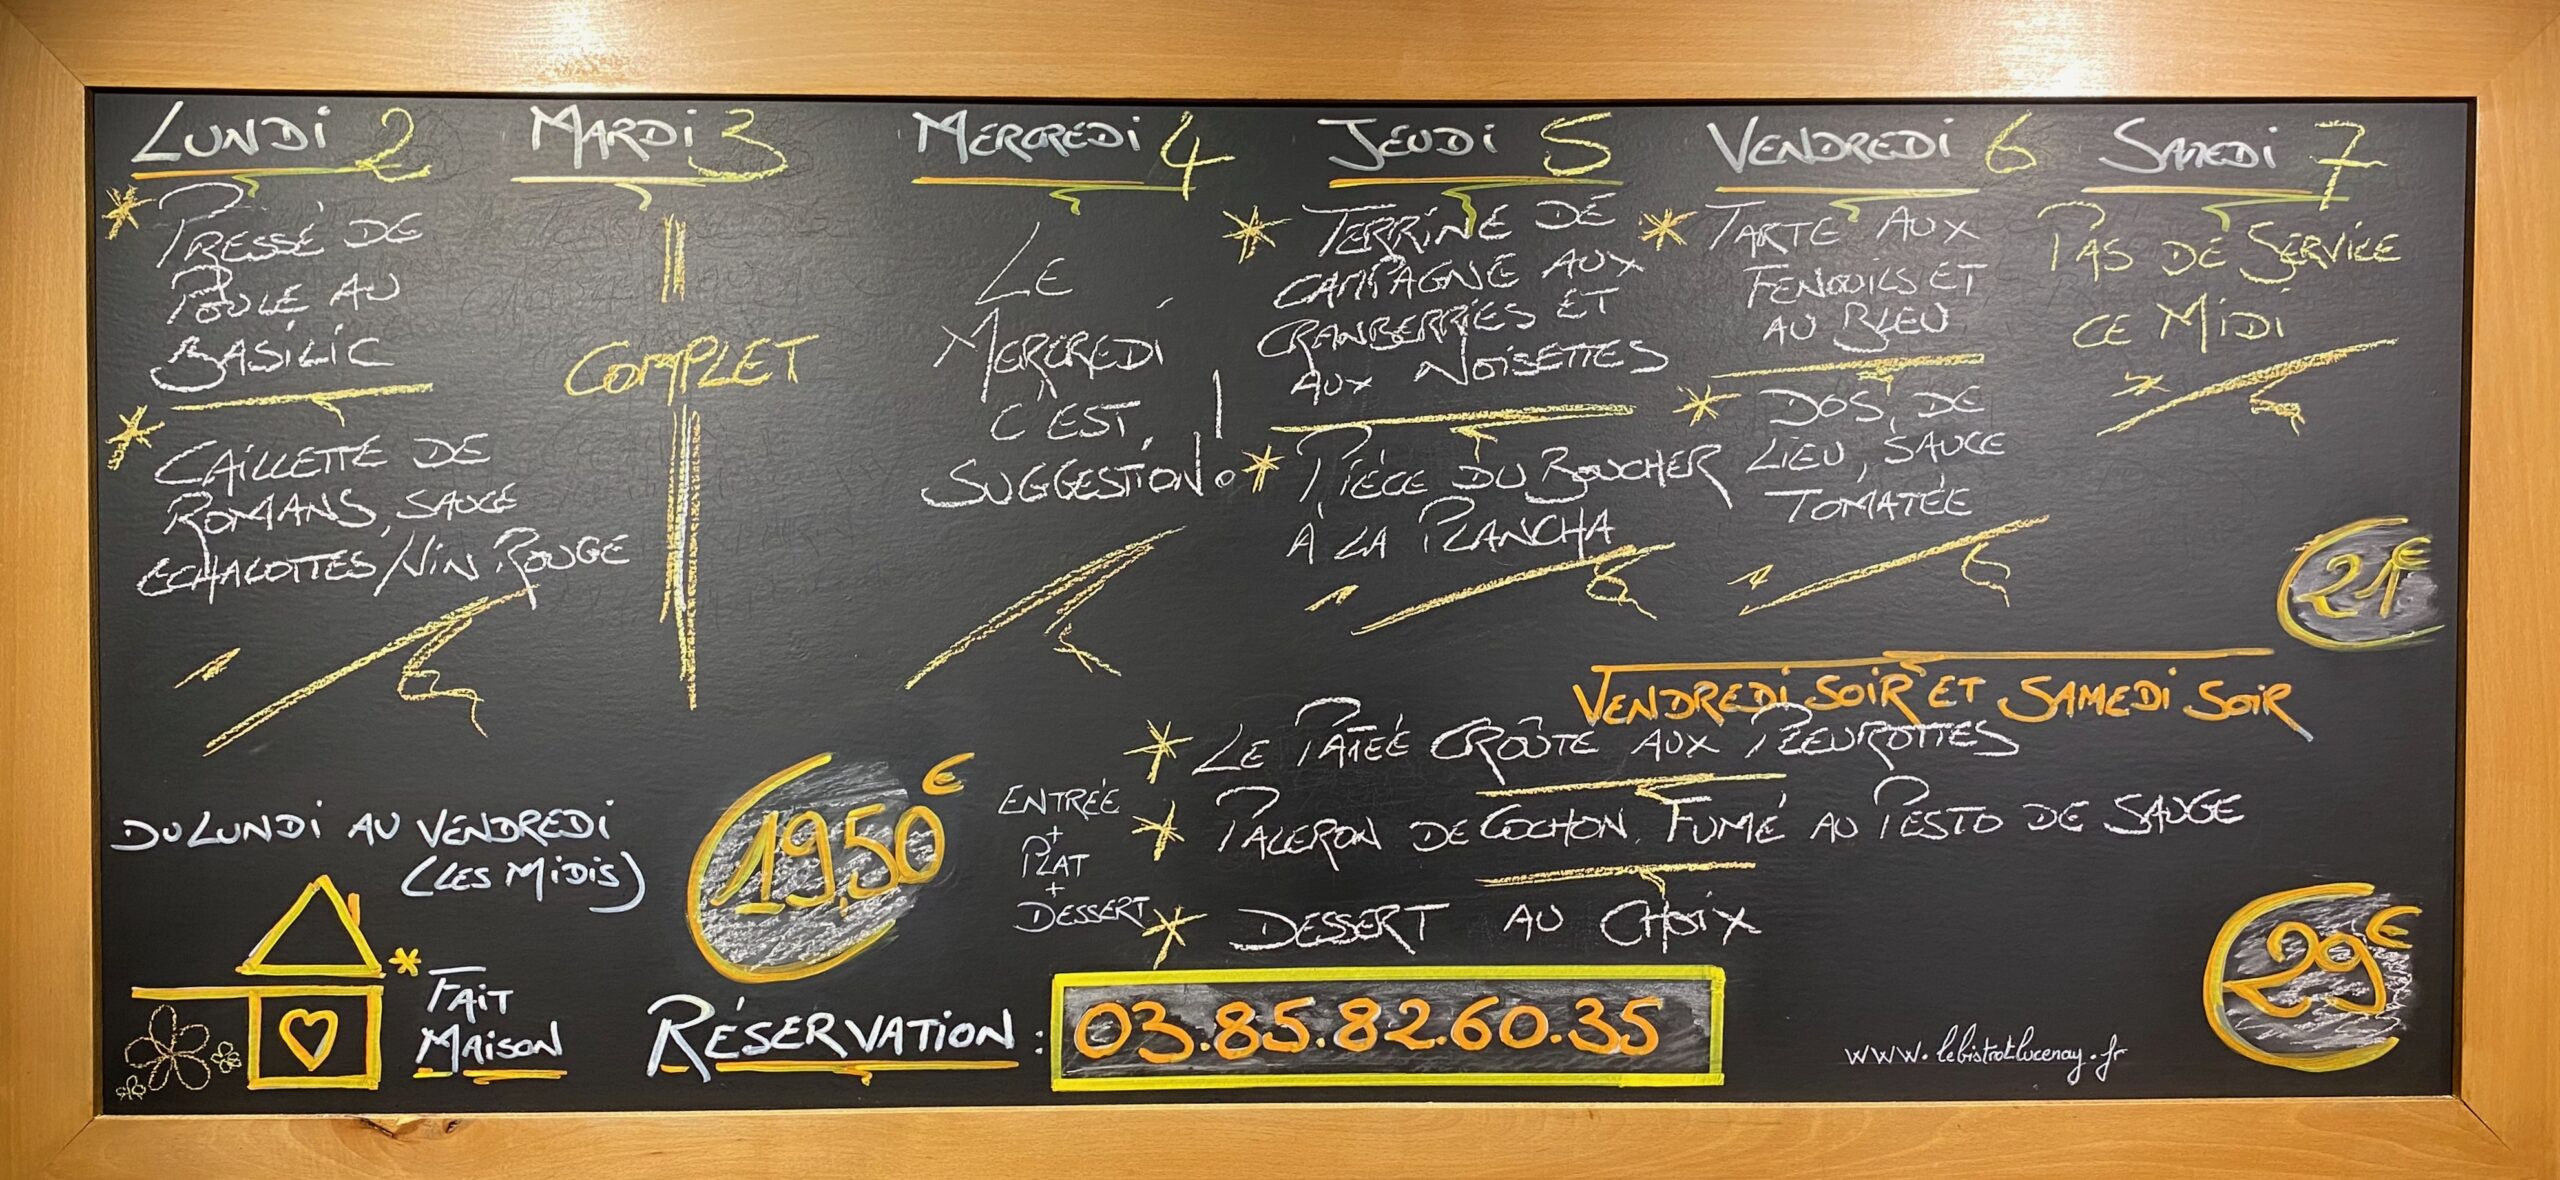 LUNDI 2
* PRESSÉ DE
POULE AU
BASILIC
* CAILLETTE DE
ROMANS, SAUCE
ECHALOTTES/VIN ROUGE
MARDI 3
COMPLET
MERCREDI 4
LE
MERCREDI
C'EST
SUGGESTION!
JEUDI 5
* TERRINE DE
CAMPAGNE AUX
CRANBERRIES ET
AUX NOISETTES
* PIÈCE DU BOUCHER
À LA PLANCHA
VENDREDI 6
* TARTE AUX
FENOUILS ET
AU BLEU
* DOS DE
LIEU, SAUCE
TOMATÉE
SAMEDI 7
PAS DE SERVICE
CE MIDI
21€
VENDREDI SOIR ET SAMEDI SOIR
* LE PATÉE CROÛTE AUX PLEUROTTES
* PALERON DE COCHON FUMÉ AU PESTO DE SAUGE
* DESSERT AU CHOIX
29€
DU LUNDI AU VENDREDI
(LES MIDIS)
19,50€
ENTRÉE
+
PLAT
+
DESSERT
* FAIT
MAISON
RÉSERVATION : 03.85.82.60.35
www.lebistrotlucenay.fr